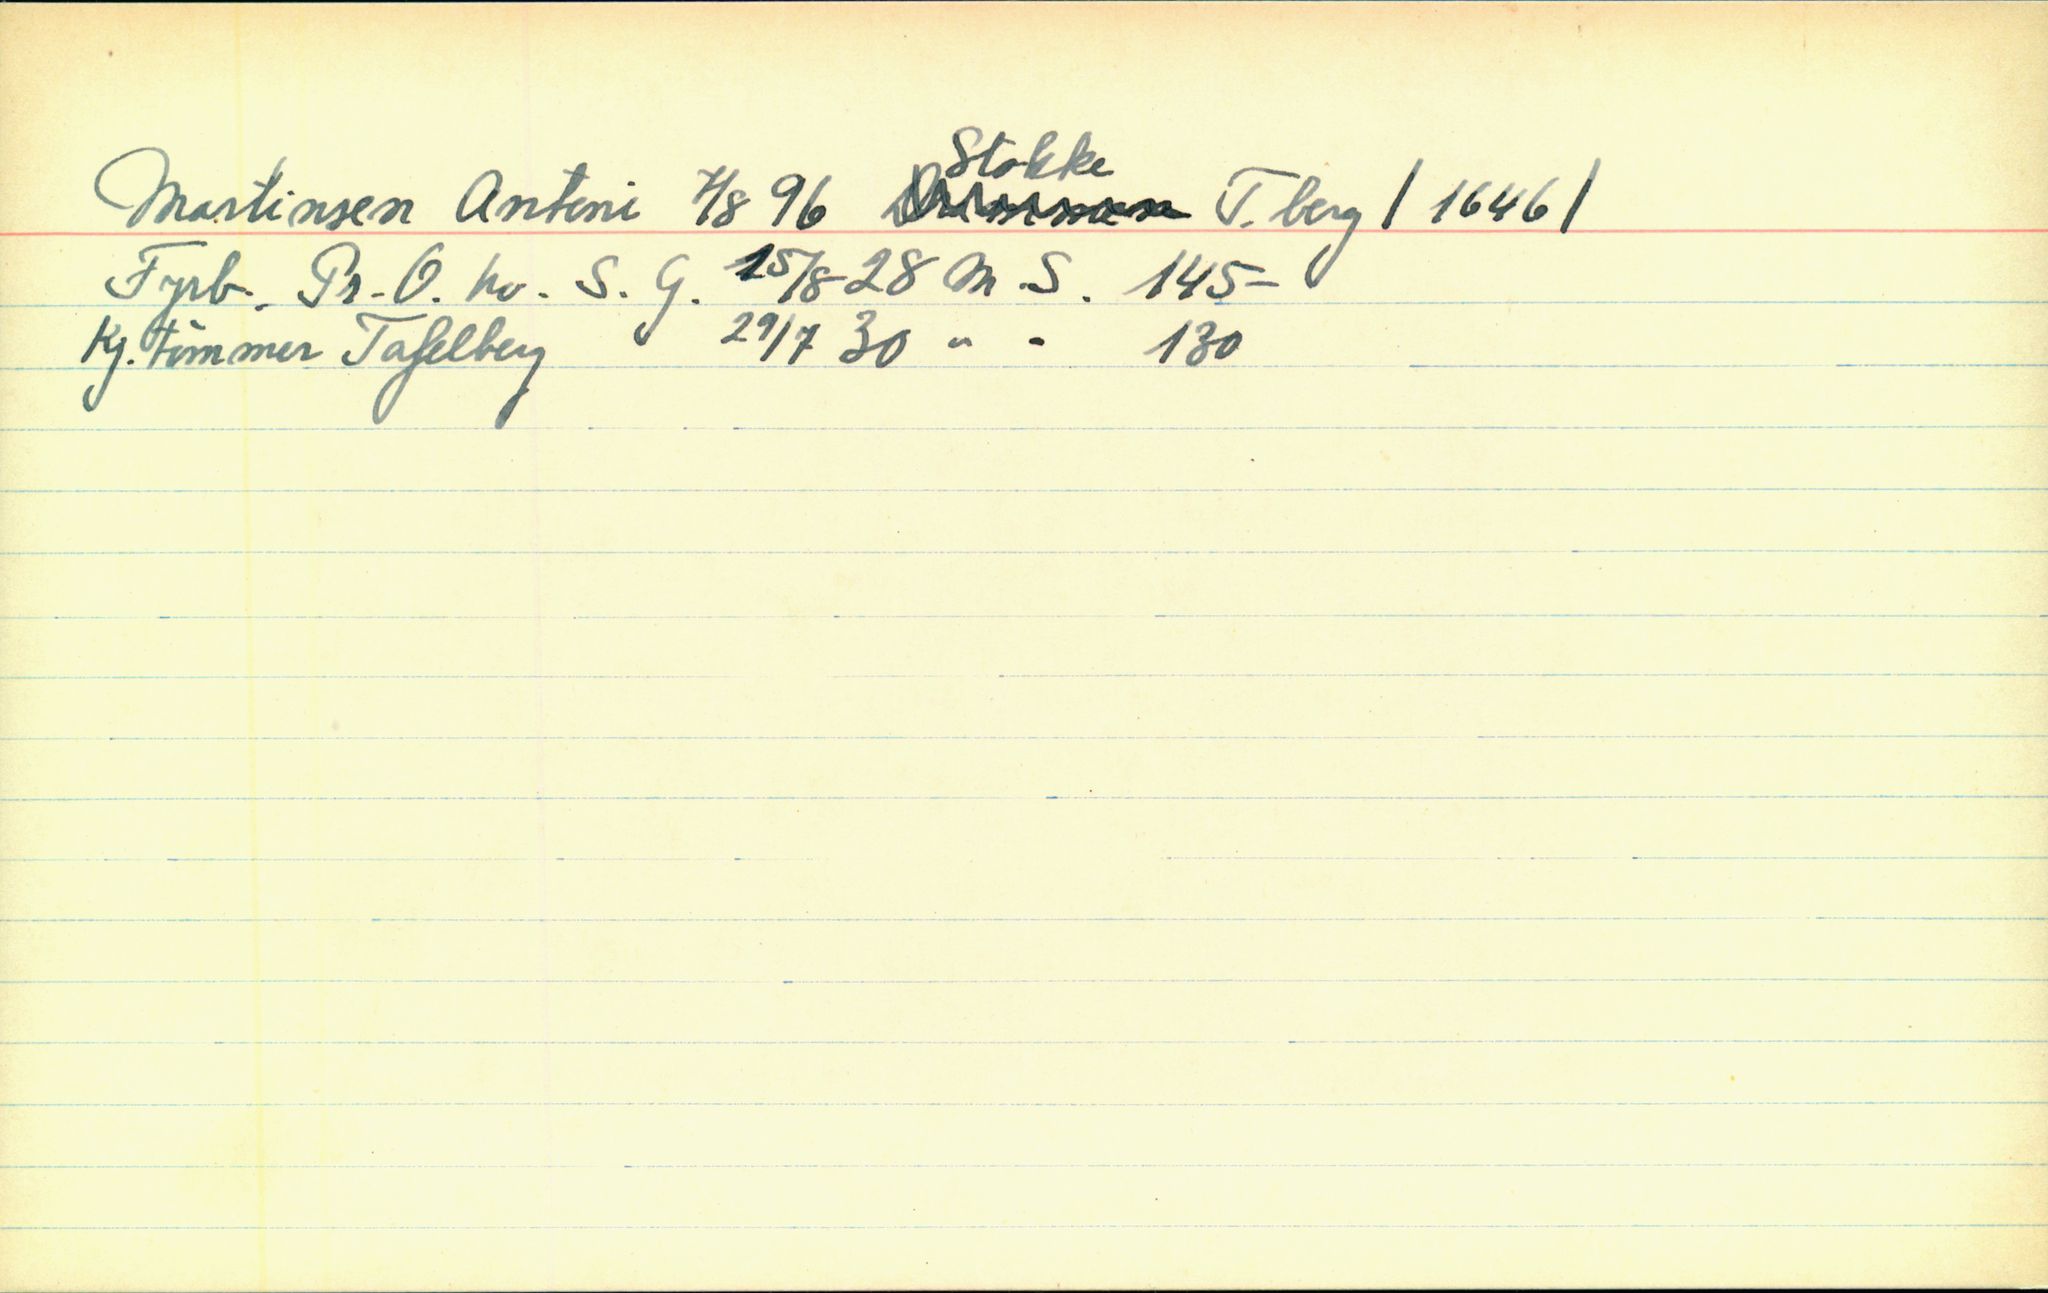 Stokke
Martinsen Antoni 7/8 96 T. berg / 1646 /
Fyrb. Pr. O. hv. S. G. 15/8-28 M. S. 145-
Kj. tømmer Tafelberg 29/7 30 " " 130